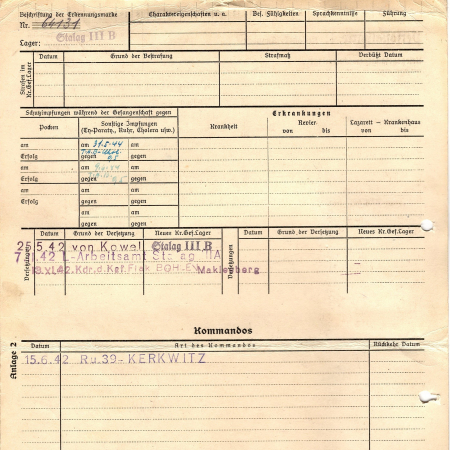 Beschriftung der Erkennungsmarke
Nr. 64131
Lager: Stalag III B
Charaktereigenschaften u. a.
Bes. Fähigkeiten
Sprachkenntnisse
Führung
Strafen im Kr.Gef.Lager
Datum
Grund der Bestrafung
Strafmaß
Verbüßt Datum
Schutzimpfungen während der Gefangenschaft gegen
Erkrankungen
Pocken
Sonstige Impfungen
(Ty-Paraty., Ruhr, Cholera usw.)
Krankheit
Revier
von bis
Lazarett - Krankenhaus
von bis
am am 31.5.44 am
Erfolg gegen gegen
am am am
Erfolg gegen gegen
am am am
Erfolg gegen gegen
am am
gegen gegen
Versetzungen
Datum Grund der Versetzung Neues Kr.Gef.Lager
Versetzungen
Datum Grund der Versetzung Neues Kr.Gef.Lager
25.5.42 von Kowel Stalag III B
Kommandos
Anlage 2
Datum Art des Kommandos Rückkehr Datum
15.6.42 Ru.39-KERKWITZ